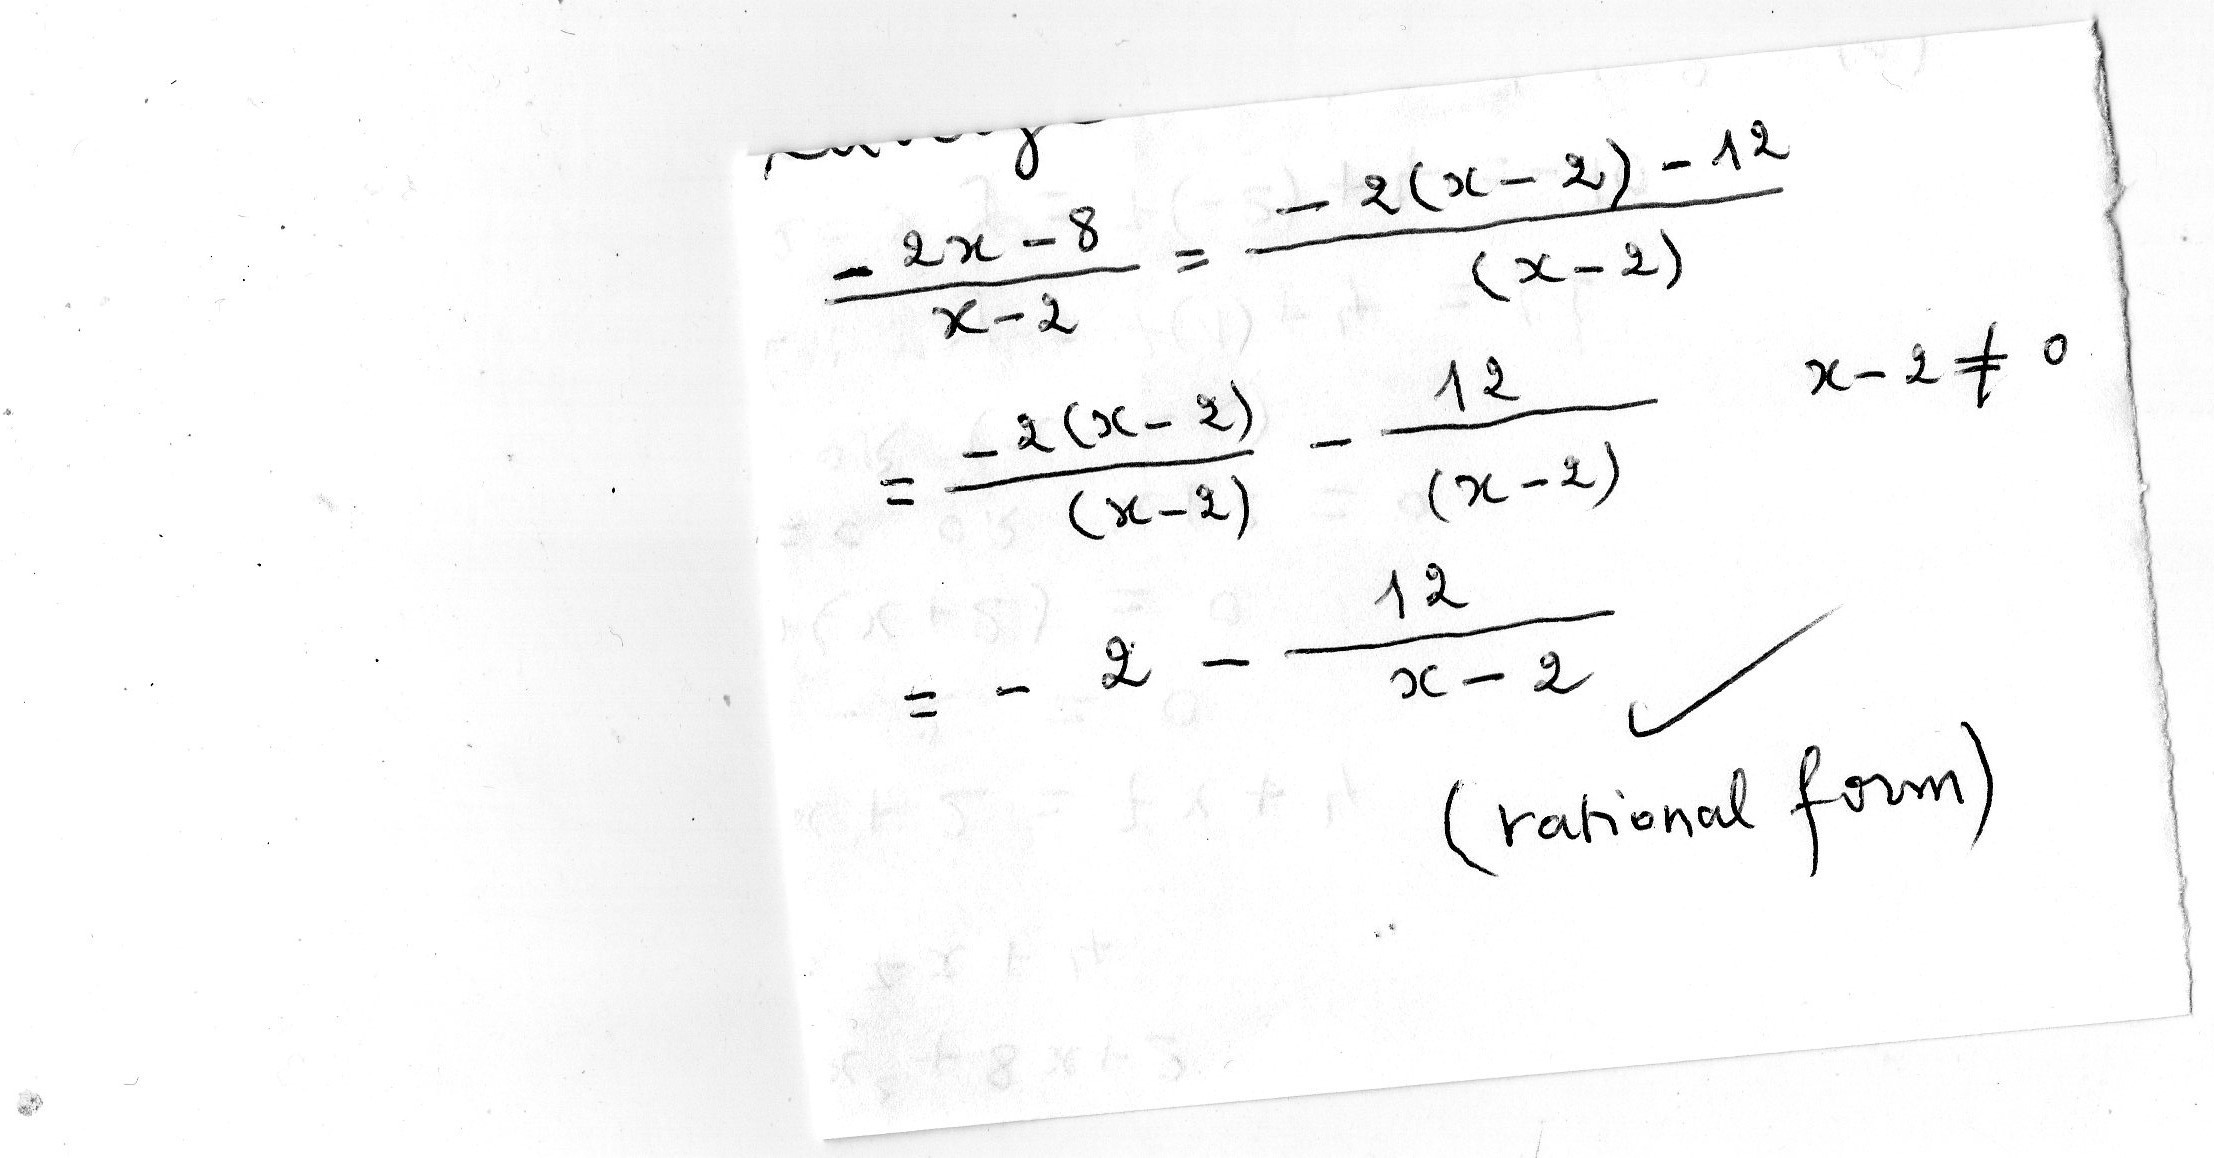 (-2x-8)/(x-2) = (-2(x-2)-12)/((x-2))
= (-2(x-2))/((x-2)) - 12/((x-2))    x-2≠0
= -2 - 12/(x-2) ✓
(rational form)